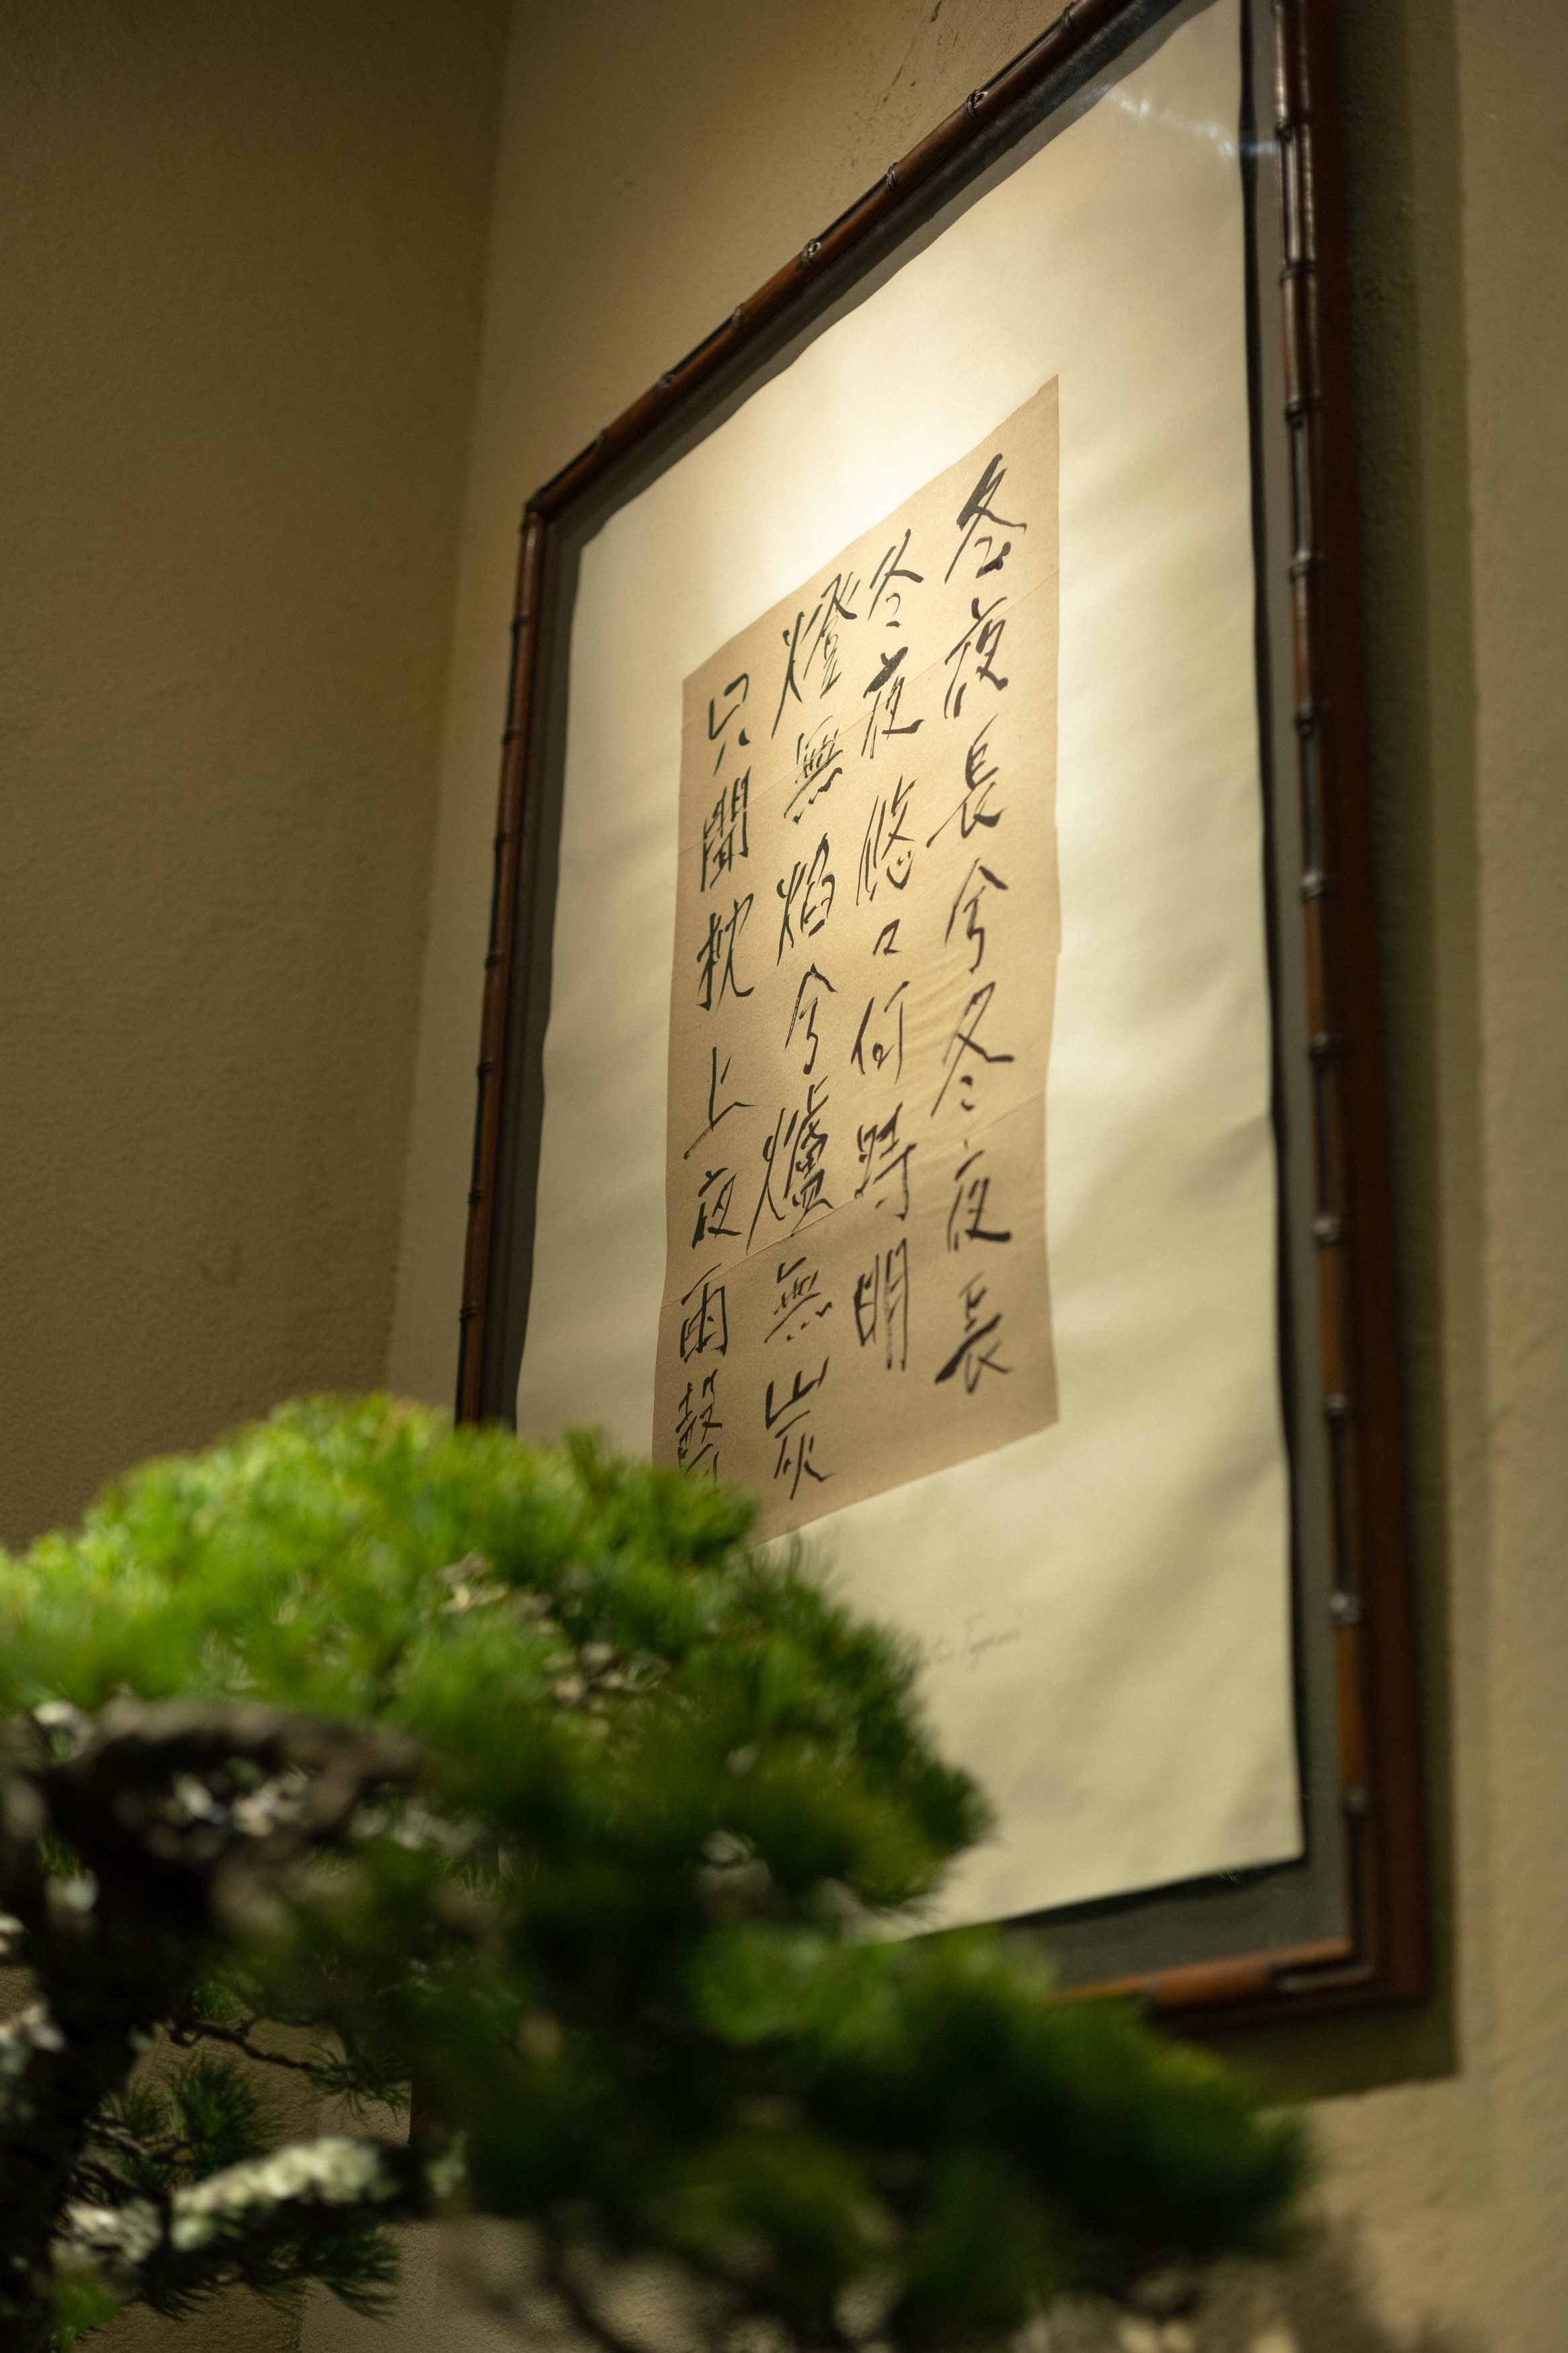 冬夜長兮冬夜長
冬夜悠々何時明
燈無焰兮爐無炭
只聞枕上夜雨聲